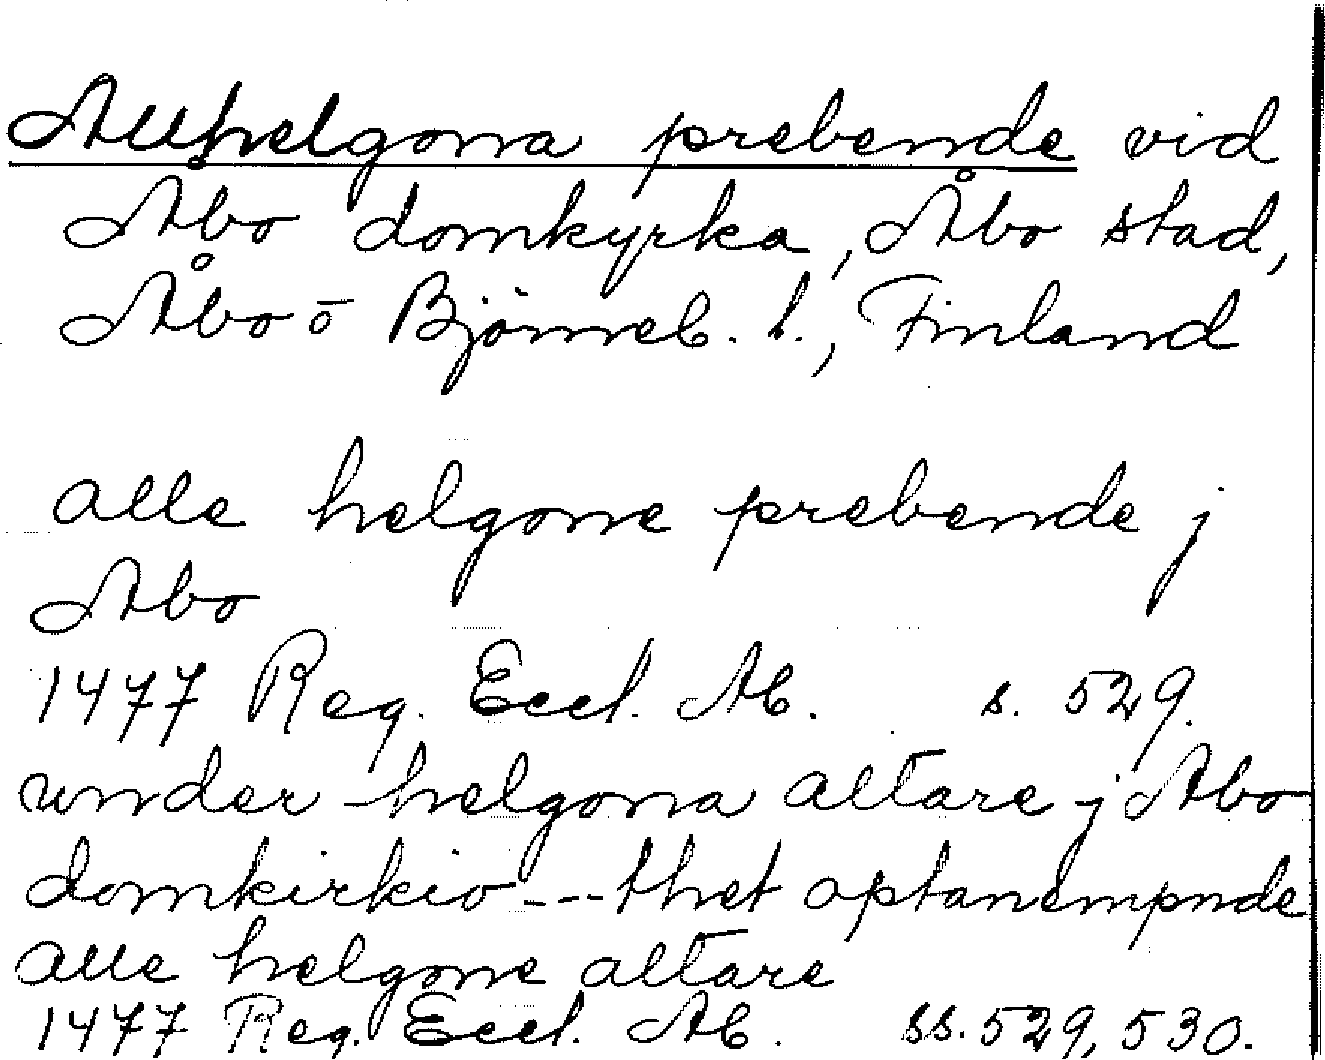 Allhelgona prebende vid
Åbo domkyrka, Åbo stad,
Åbo o Björneb. l., Finland
alle helgone prebende j
Abo
1477 Reg. Eccl. Ab. s. 529.
under helgona altare j Abo
domkirkio --- thet optanempnde
alle helgone altare
1477 Reg. Eccl. Ab. ss. 529, 530.